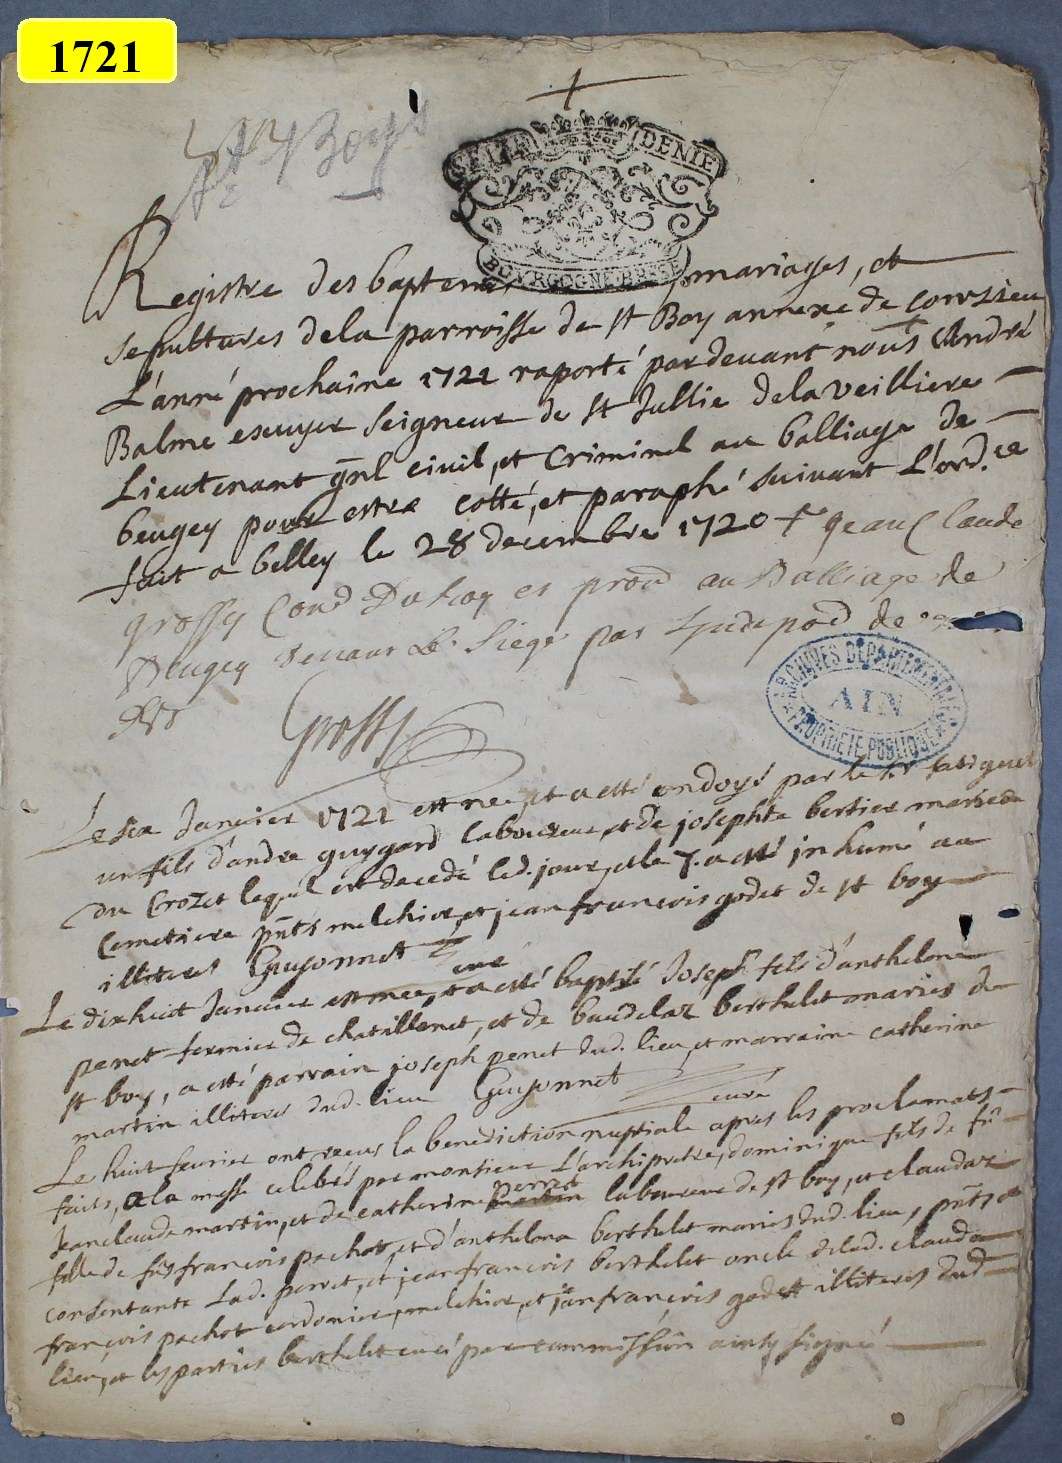 1721
St Boys
SEIZE DENIE
BOURGOGNE BRESSE
Registre des baptem mariages, et
sepultures dela parroisse de st Boy annexe de Conzieu
L'anné prochaine 1721 raporté pardevant nous André
Balme escuyer seigneur de St Jullie dela veilliere
Lieutenant gnl civil, et Criminel au balliage de
beugey pour estre cotté, et paraphé suivant L'ord.ce
fait a belley le 28 decembre 1720 + jean Claude
grossy Con.d Du Roy et pro.d au Balliage de
Beugey tenant Le siege par
Grossy
ARCHIVES DEPARTEMENTALES
AIN
PROPRIETE PUBLIQUE
Le six Janvier 1721 est ne, et a esté ondoyé par le sr
un fils d'andre guygard laboureur, et de josephte bertier mariés
du Crozet lequel est decedé led. jour, et le 7. a esté inhumé au
cemetiere pnts melchior, et jean françois godet de st boy
illiteres Guyonnet curé
Le dixhuit Janvier est nee, et a esté baptisé Joseph fils d'anthelme
penet fermier de chatillonet, et de baudelaz berthelet mariés de
st boy, a esté parrain joseph penet dud. lieu, et marraine catherine
martin illiteres dud. lieu Guyonnet curé
Le huit fevrier ont receus la benediction nuptiale apres les proclamats
faits, a la messe celebrés par monsieur L'archipretre, dominique fils de fû
Jeanclaude martin, et de catherine perret laboureur de st boy, et claudaz
fille de fû françois pachot, et d'anthelma berthelet mariés dud. lieu, pnts
consentante Lad. perret, et jean françois berthelet oncle delad. claudaz
françois pachot cordonier, melchior, et jean françois godet illiteres dud
lieu, et les parties berthelet curé par commission ainsy signé